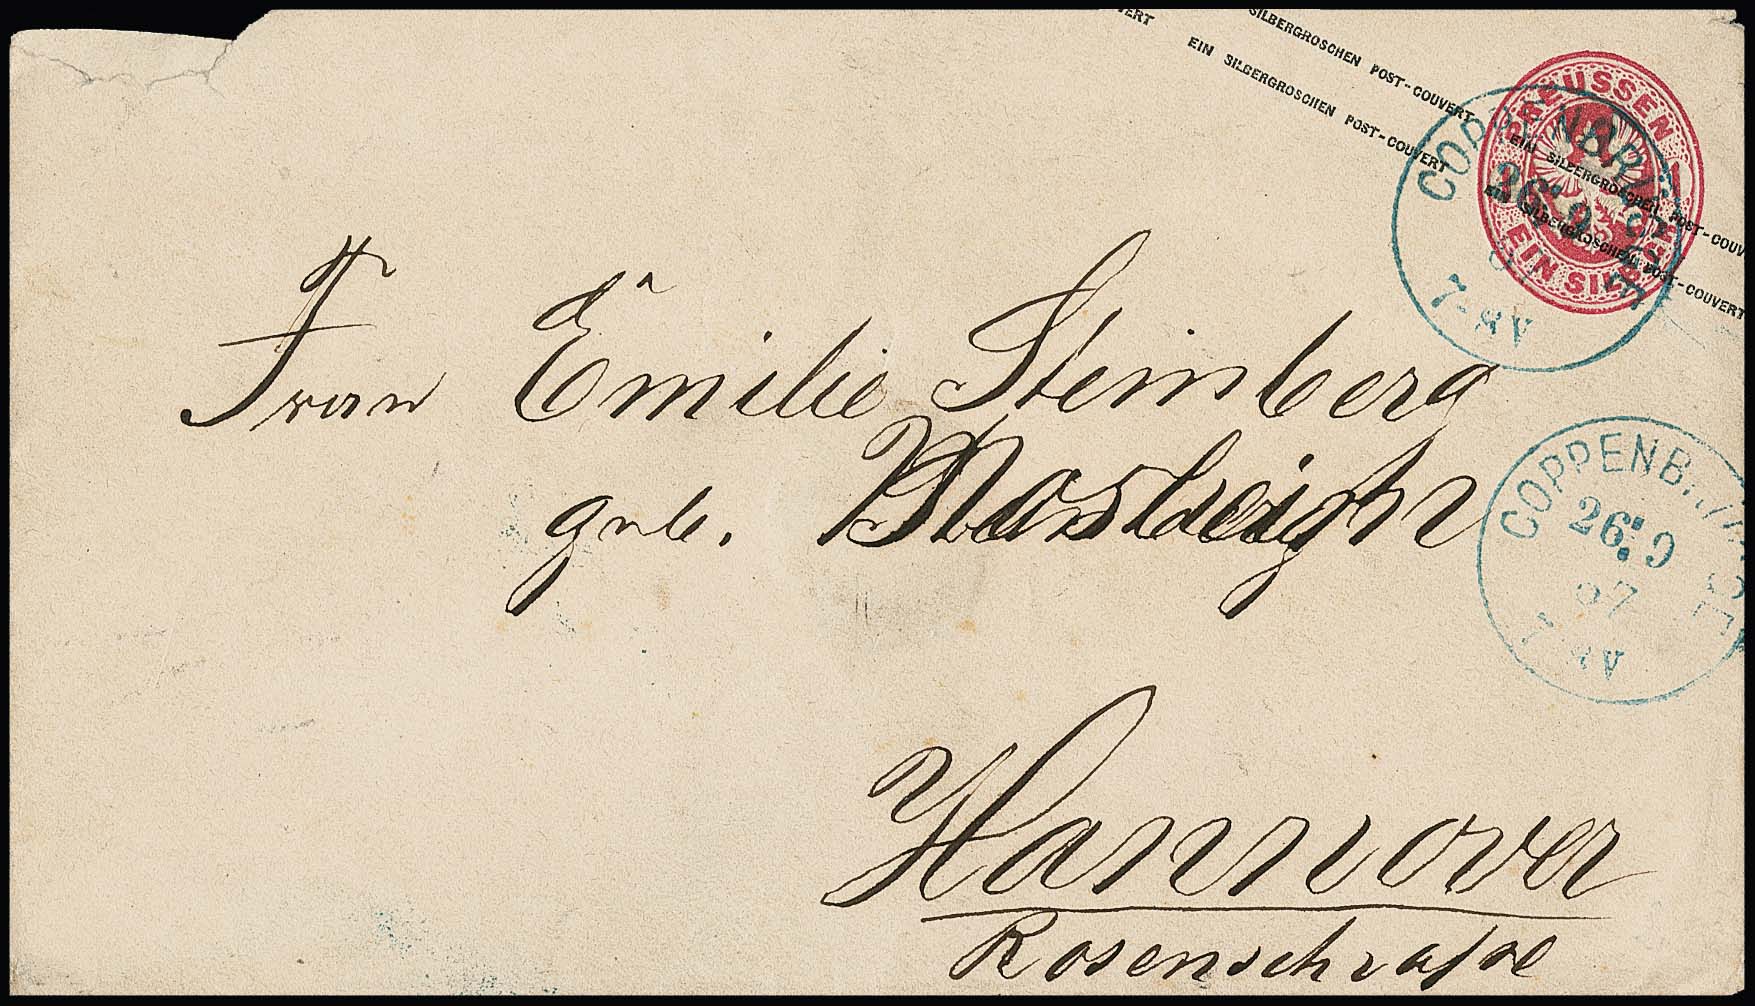 VERT
SILBERGROSCHEN POST-COUVERT EIN SILBERGROSCHEN POST-COUV
EIN SILBERGROSCHEN POST-COUVERT EIN SILBERGROSCHEN POST-COUVERT
PREUSSEN
1
EIN SILB
COPPENBRÜGGE
26 9
7-8V
Frau Emilie Steinberg
geb.
COPPENBR
26 9
67
7 8V
Hannover
Rosenstraße